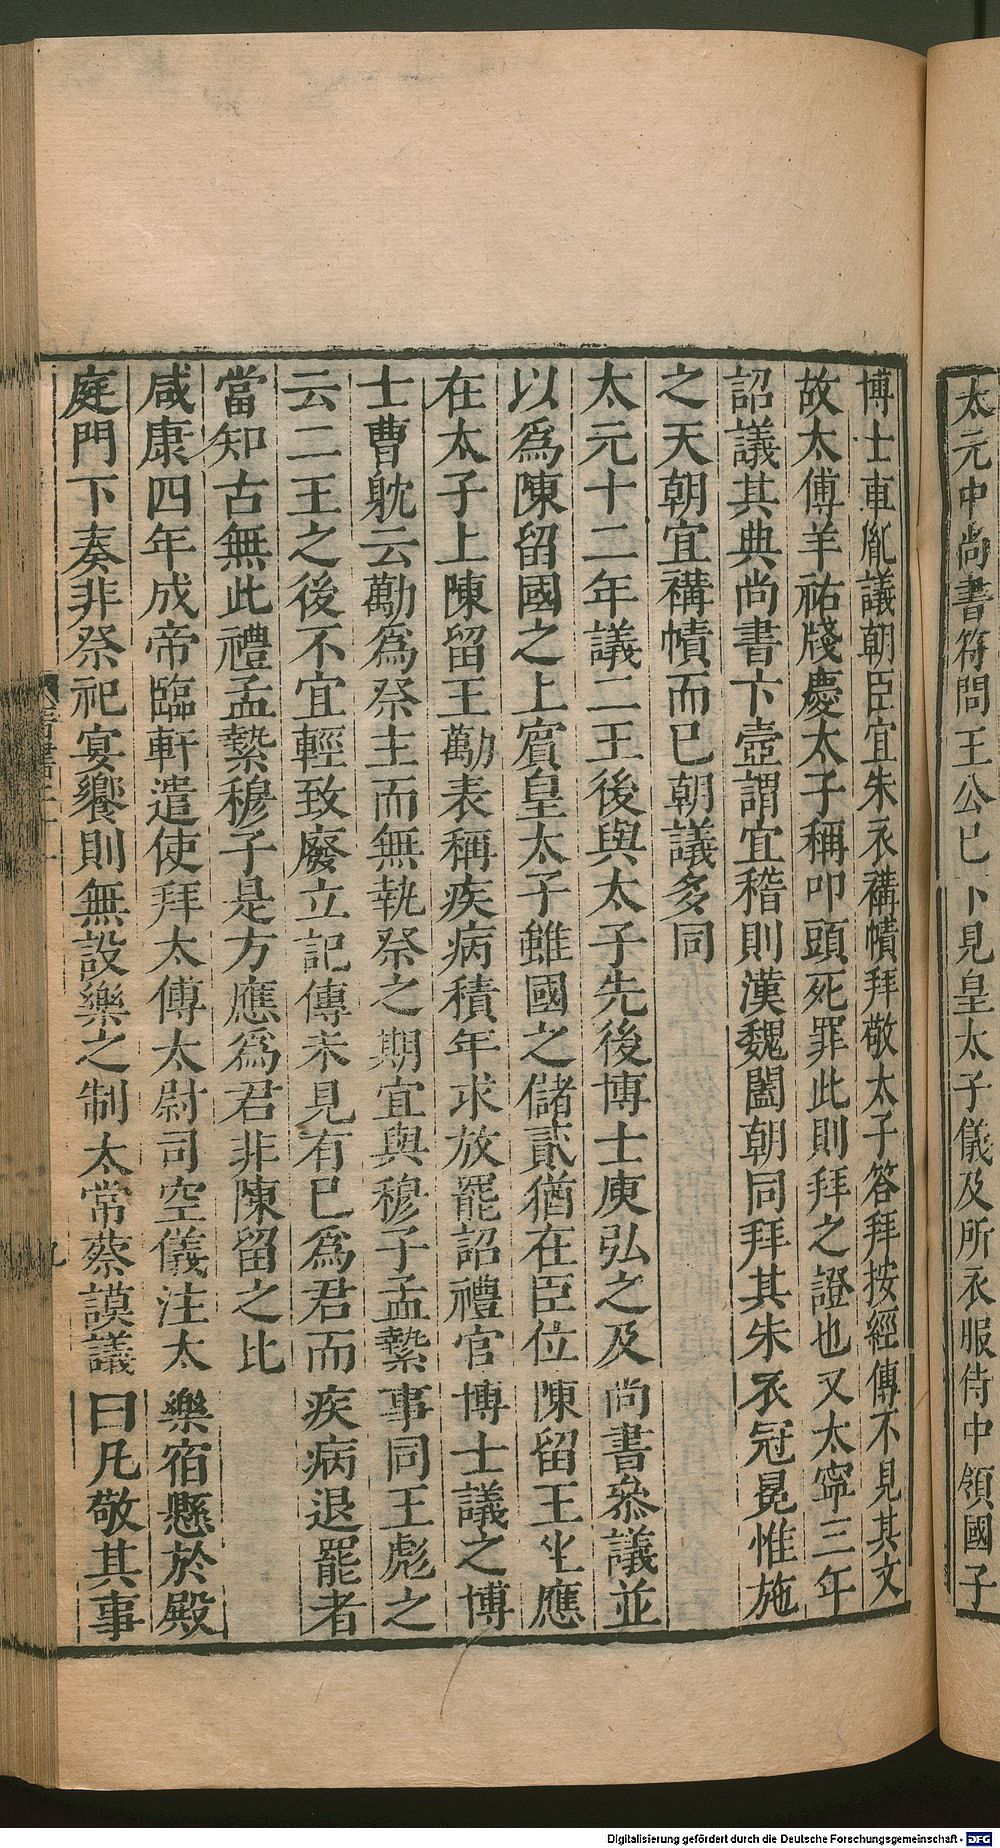 太元中尚書符問王公已下見皇太子儀及所衣服侍中領國子
博士車胤議朝臣宜朱衣褠幘拜敬太子答拜按經傳不見其文
故太傅羊祐牋慶太子稱叩頭死罪此則拜之證也又太寧三年
詔議其典尚書卞壼謂宜稽則漢魏闔朝同拜其朱衣冠冕惟施
之天朝宜褠幘而已朝議多同
太元十二年議二王後與太子先後博士庾弘之及尚書參議並
以爲陳留國之上賓皇太子雖國之儲貳猶在臣位陳留王坐應
在太子上陳留王勱表稱疾病積年求放罷詔禮官博士議之博
士曹躭云勱爲祭主而無執祭之期宜與穆子孟縶事同王彪之
云二王之後不宜輕致廢立記傳未見有已爲君而疾病退罷者
當知古無此禮孟縶穆子是方應爲君非陳留之比
咸康四年成帝臨軒遣使拜太傅太尉司空儀注太樂宿懸於殿
庭門下奏非祭祀宴饗則無設樂之制太常蔡謨議曰凡敬其事
Digitalisierung gefördert durch die Deutsche Forschungsgemeinschaft - DFG